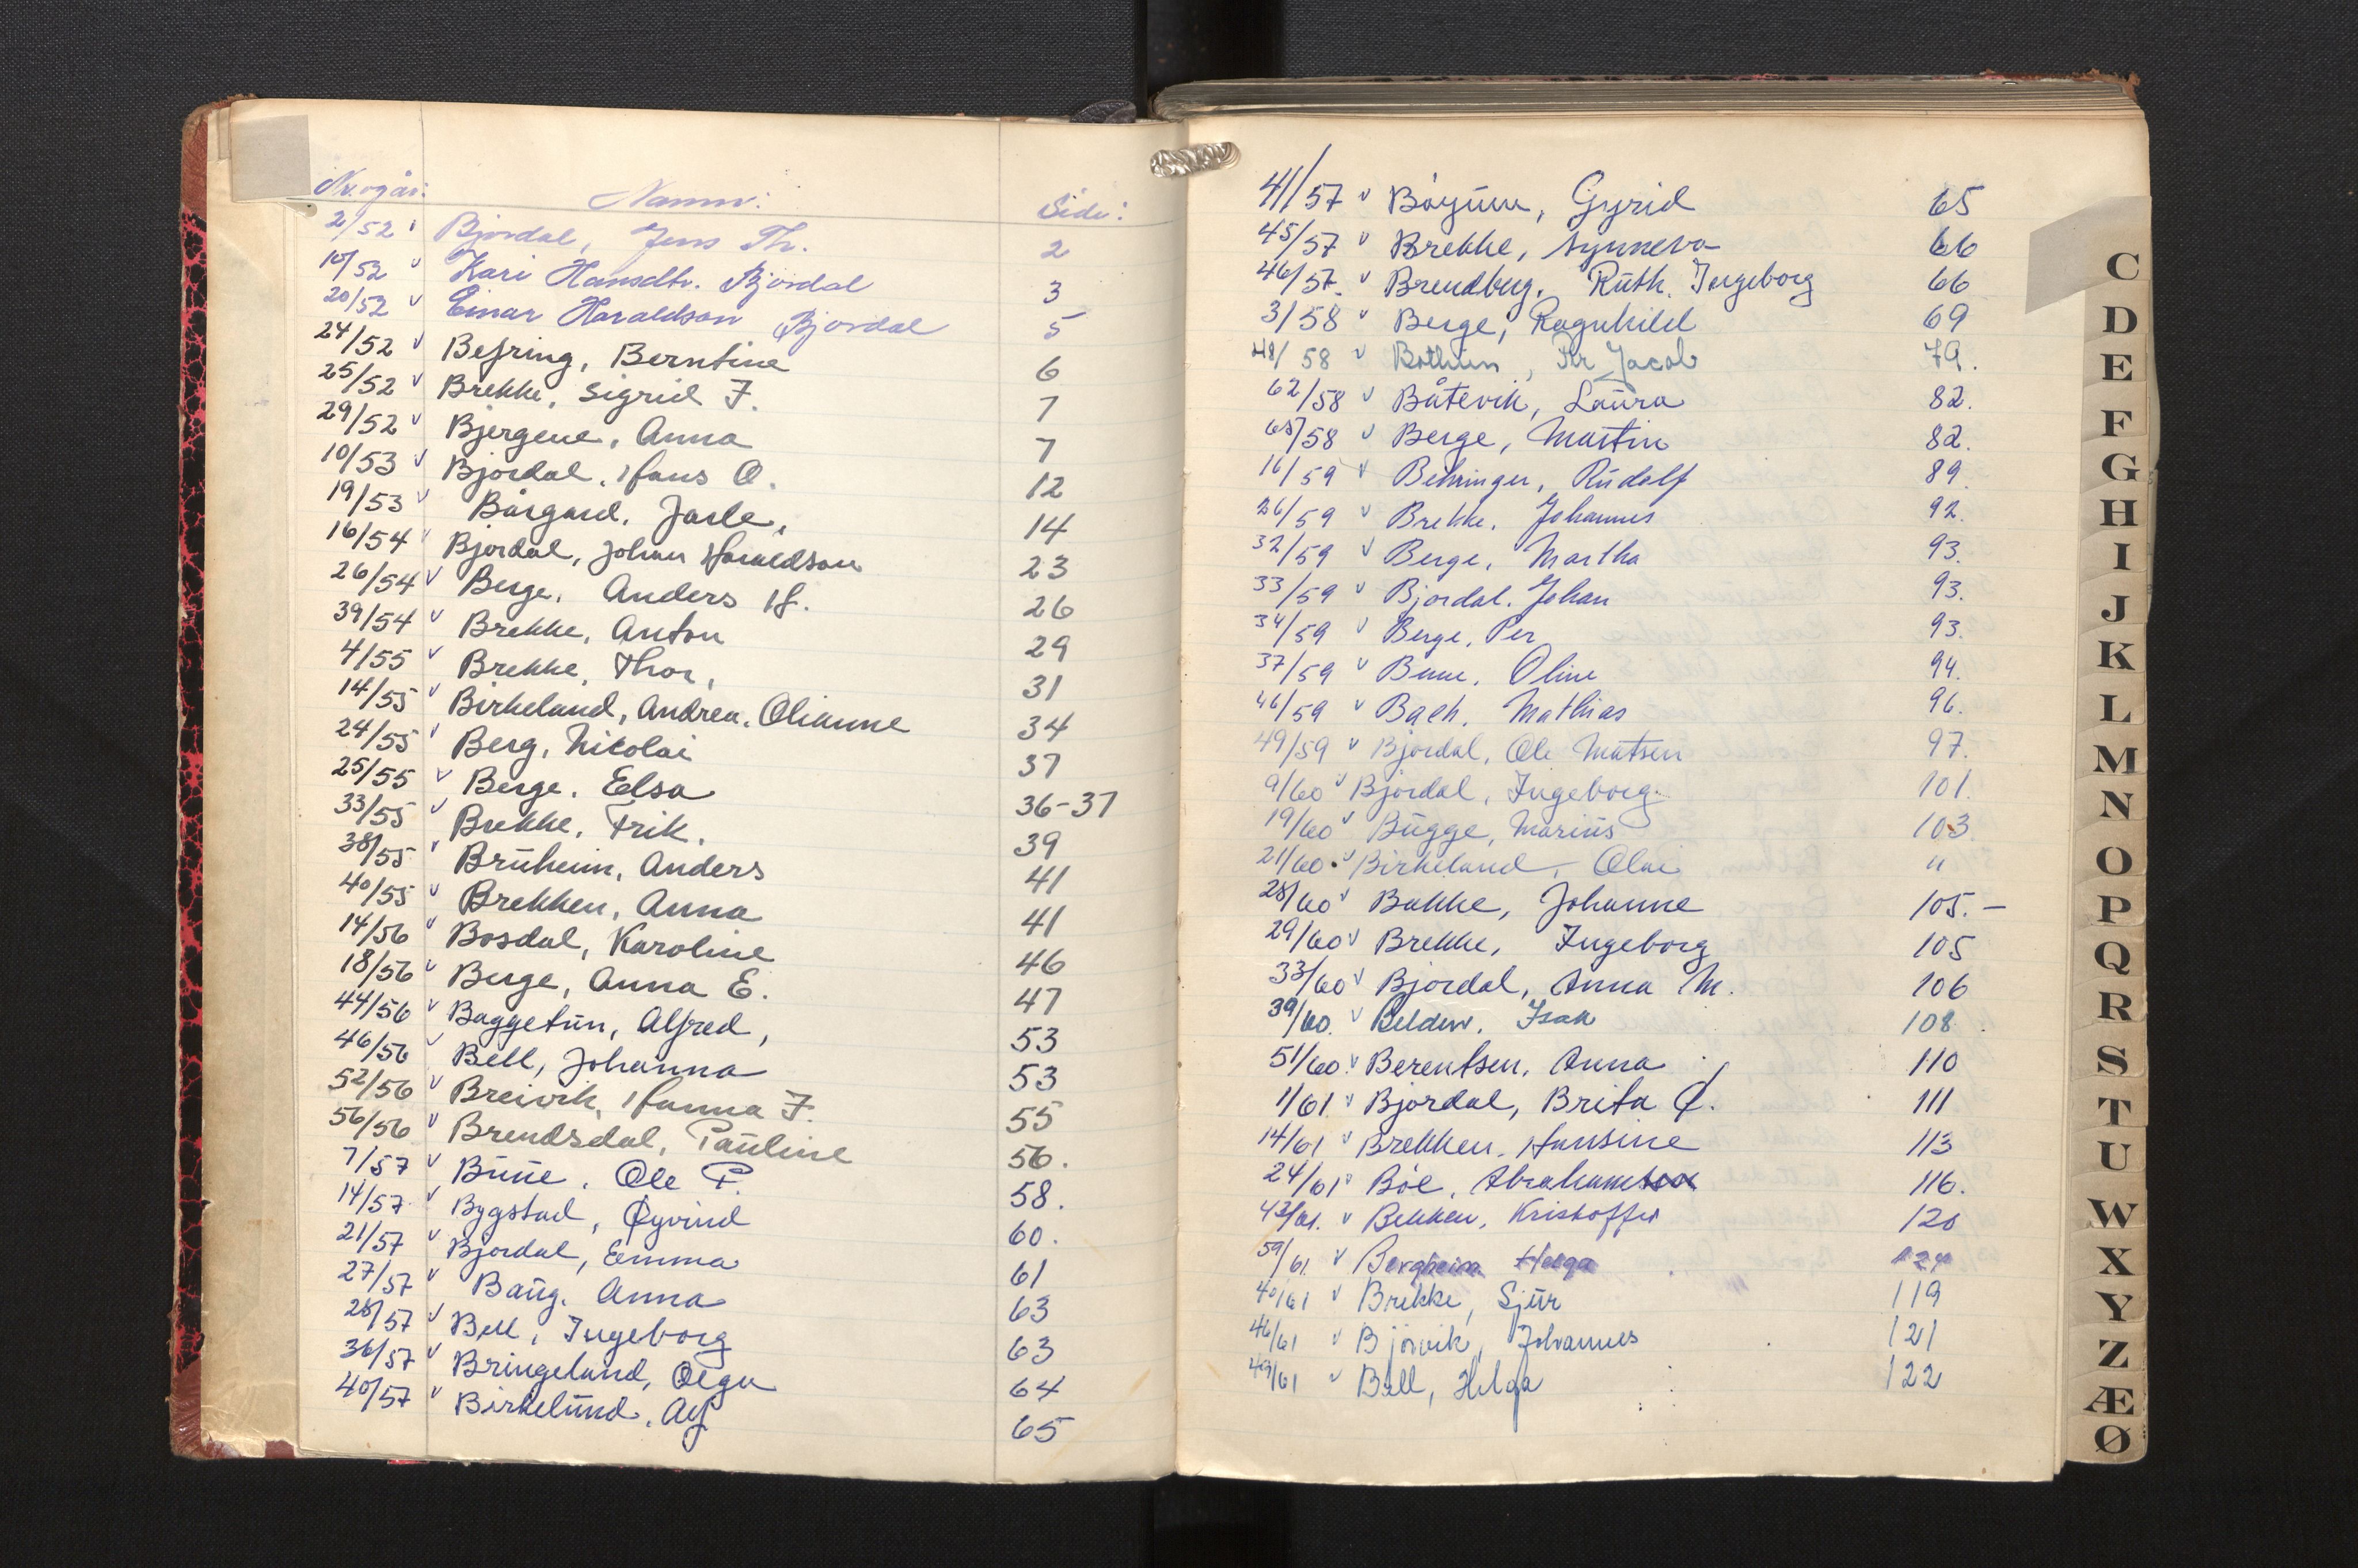 Nr. og år: Namn: Side:
2/52 v Bjordal, Jens Th. 2
10/52 v Kari Hansdtr. Bjordal 3
20/52 v Einar Haraldson Bjordal 5
24/52 v Befring, Berntine 6
25/52 v Brekke, Sigrid J. 7
29/52 v Bjergene, Anna 7
10/53 v Bjordal, Hans O. 12
19/53 v Bårgard, Jarle, 14
16/54 v Bjordal, Johan Haraldson 23
26/54 v Berge, Anders H. 26
39/54 v Brekke, Anton 29
4/55 v Brekke, Thor, 31
14/55 v Birkeland, Andrea. Olianne 34
24/55 v Berg, Nicolai 37
25/55 v Berge, Elsa 36-37
33/55 v Brekke, Erik. 39
38/55 v Bruheim, Anders 41
40/55 v Brekken, Anna 41
14/56 v Bosdal, Karoline 46
18/56 v Berge, Anna E. 47
44/56 v Baggetun, Alfred, 53
46/56 v Bell, Johanna 53
52/56 v Breivik, Hanna J. 55
56/56 v Brendsdal, Pauline 56.
7/57 v Bune, Ole P. 58.
14/57 v Bygstad, Øyvind 60.
21/57 v Bjordal, Emma 61
27/57 v Baug, Anna 63
28/57 v Bell, Ingeborg 63
36/57 v Bringeland, Olga 64
40/57 v Birkelund, Alf 65
41/57 v Bøyum, Gyrid 65
45/57 v Brekke, Synneva 66
46/57 v Brendberg, Ruth. Ingeborg 66
3/58 v Berge, Ragnhild 69
48/58 v Bothun, Per Jacob 79.
62/58 v Båtevik, Laura 82.
65/58 v Berge, Martin 82.
16/59 v Behringer, Rudolf 89.
26/59 v Brekke, Johannes 92.
32/59 v Berge, Martha 93.
33/59 v Bjordal, Johan 93.
34/59 v Berge, Per 93.
37/59 v Bune, Oline 94.
46/59 v Bach, Mathias 96.
49/59 v Bjordal, Ole Matsen 97.
9/60 v Bjordal, Ingeborg. 101.
19/60 v Bugge, Marius 103
21/60 v Birkeland, Olai "
28/60 v Bakke, Johanne 105.-
29/60 v Brekke, Ingeborg 105
33/60 v Bjordal, Anna M. 106
39/60. v Isak 108.
51/60. v Berentsen, Anna 110
1/61 v Bjordal, Brita Ø. 111
14/61 v Brekken, Hansine 113
24/61 v Bøe, Abraham 116.
43/61. v Bekken, Kristoffer 120
59/61. v Bergheim Helga 124
40/61 v Brekke, Sjur 119
46/61 v Bjørvik, Johannes 121
49/61 v Bell, Helga 122
C
D
E
F
G
H
I
J
K
L
M
N
O
P
Q
R
S
T
U
W
X
Y
Z
Æ
Ø